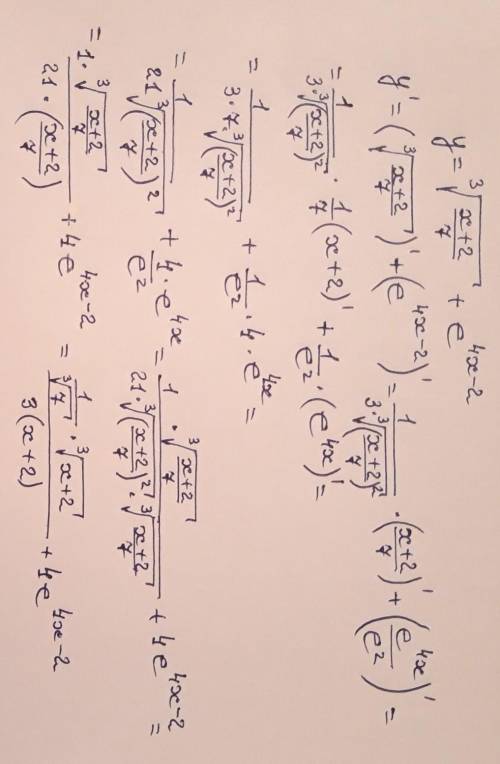 y = ∛((x+2)/7) + e^(4x-2)
y' = (∛((x+2)/7))' + (e^(4x-2))' = 1/(3·∛((x+2)/7)²) · ((x+2)/7)' + (e^(4x)/e²)' =
= 1/(3·∛((x+2)/7)²) · 1/7 (x+2)' + 1/e² · (e^(4x))' =
= 1/(3·7·∛((x+2)/7)²) + 1/e² · 4 · e^(4x) =
= 1/(21∛((x+2)/7)²) + 4/e² · e^(4x) = (1 · ∛((x+2)/7))/(21·∛((x+2)/7)² · ∛((x+2)/7)) + 4e^(4x-2) =
= (1 · ∛((x+2)/7))/(21 · ((x+2)/7)) + 4e^(4x-2) = (1/∛7 · ∛(x+2))/(3(x+2)) + 4e^(4x-2)